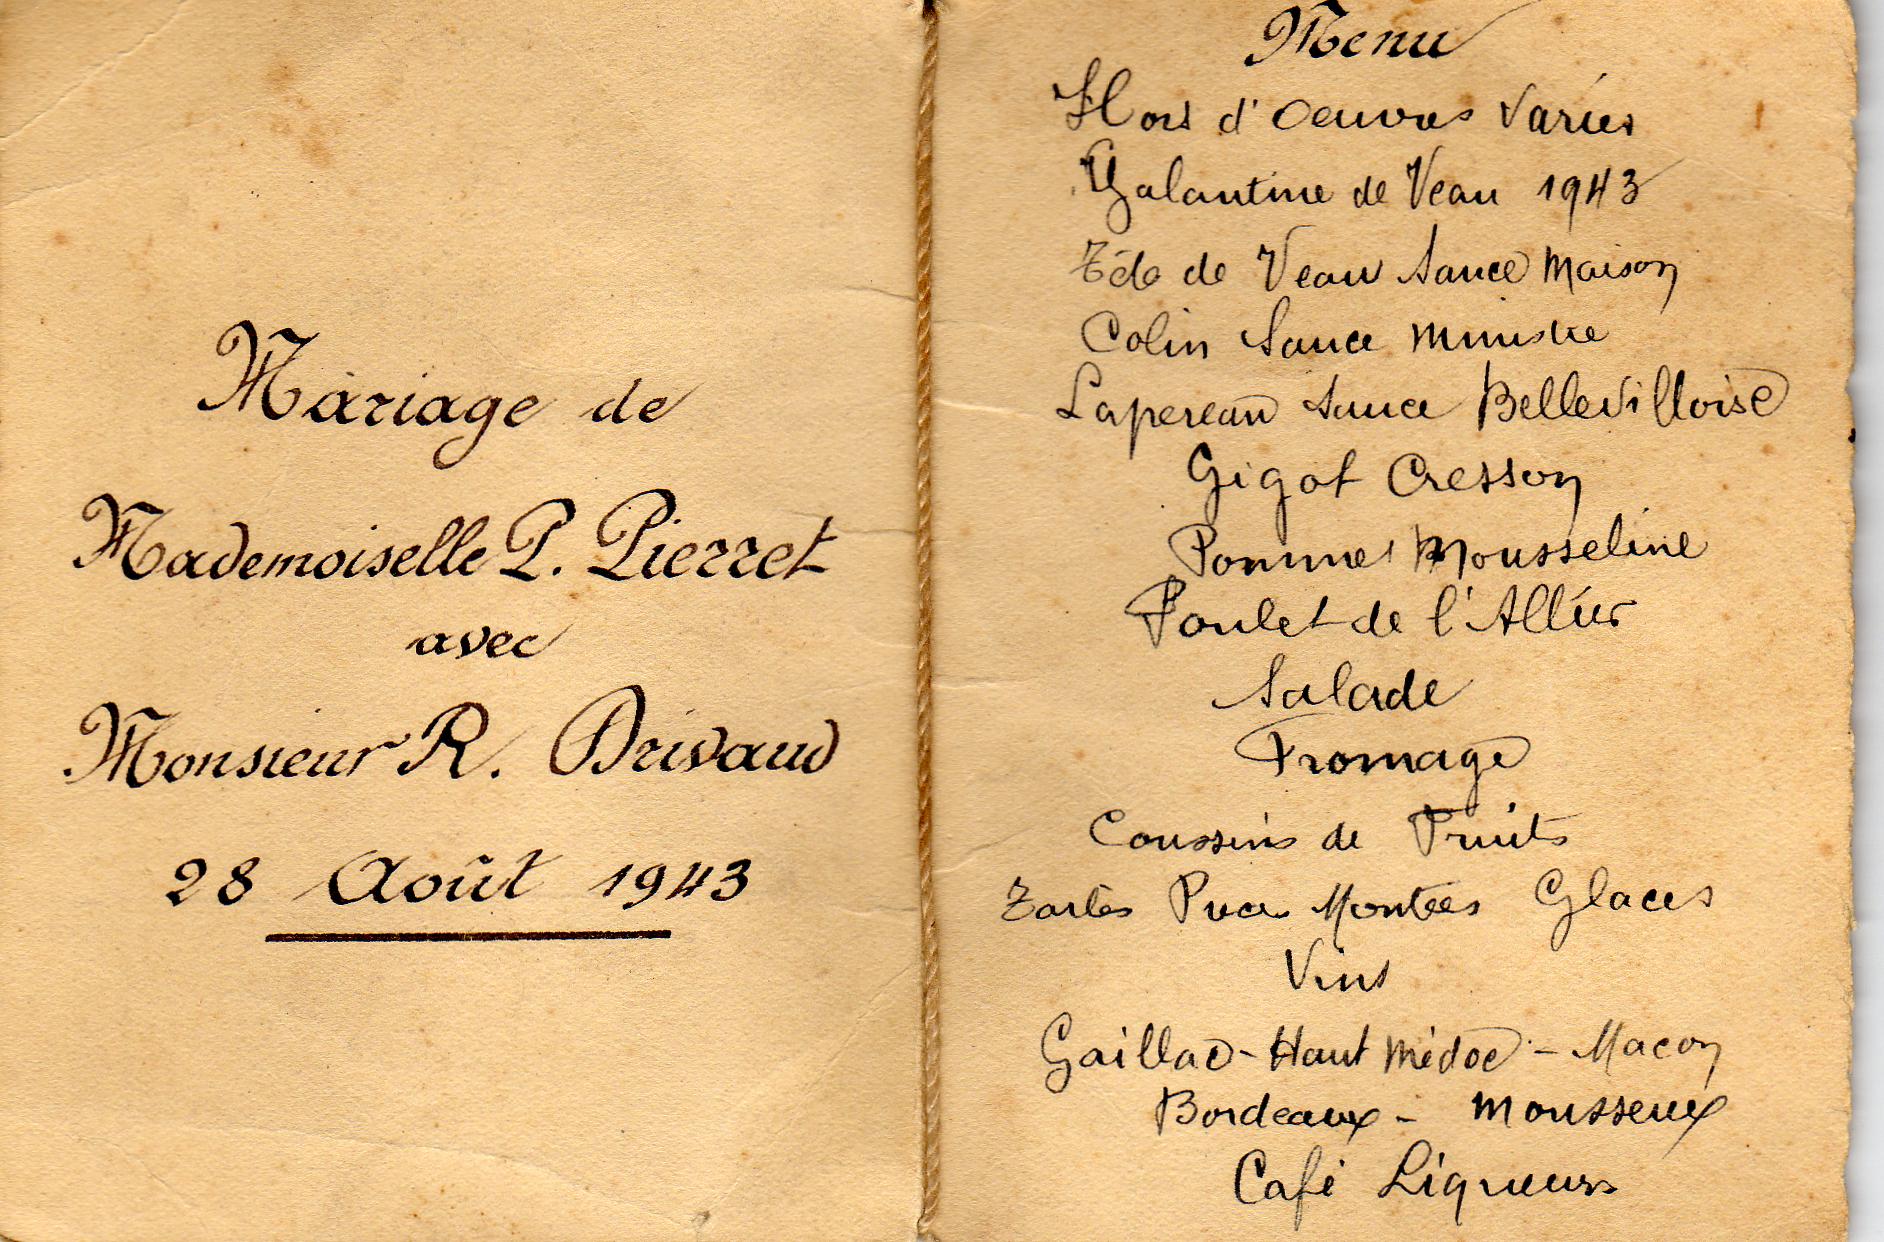 Mariage de
Mademoiselle P. Pierret
avec
Monsieur R. Drivaud
28 Août 1943
Menu
Hors d'Oeuvres Variés
Galantine de Veau 1943
Tête de Veau Sauce Maison
Colin Sauce Ministre
Lapereau Sauce Bellevilloise
Gigot Cresson
Pommes Mousseline
Poulet de l'Allier
Salade
Fromage
Coussins de Fruits
Tartes Pièces Montées Glaces
Vins
Gaillac - Haut Médoc - Macon
Bordeaux - Mousseux
Café Liqueurs